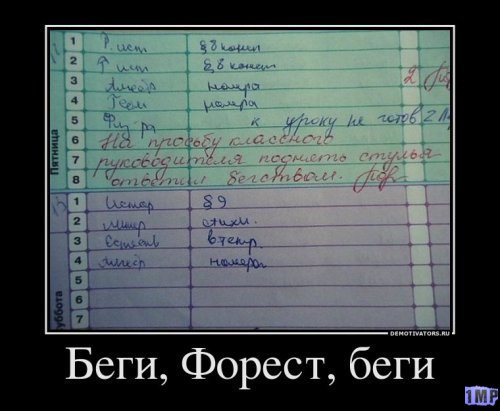 1 Р. ист § 8 конец
2 Р ист § 8 конспект
3 Алгебр номера 2
4 Геом номера
5 Физ-ра к уроку не готов 2
Пятница
6 На просьбу классного
7 руководителя поднять стулья
8 ответил бегством.
1 Истор § 9
2 Литер стихи.
3 Естеств в тетр.
4 Алгебр номера
5
6
7
уббота
DEMOTIVATORS.RU
Беги, Форест, беги
1MP